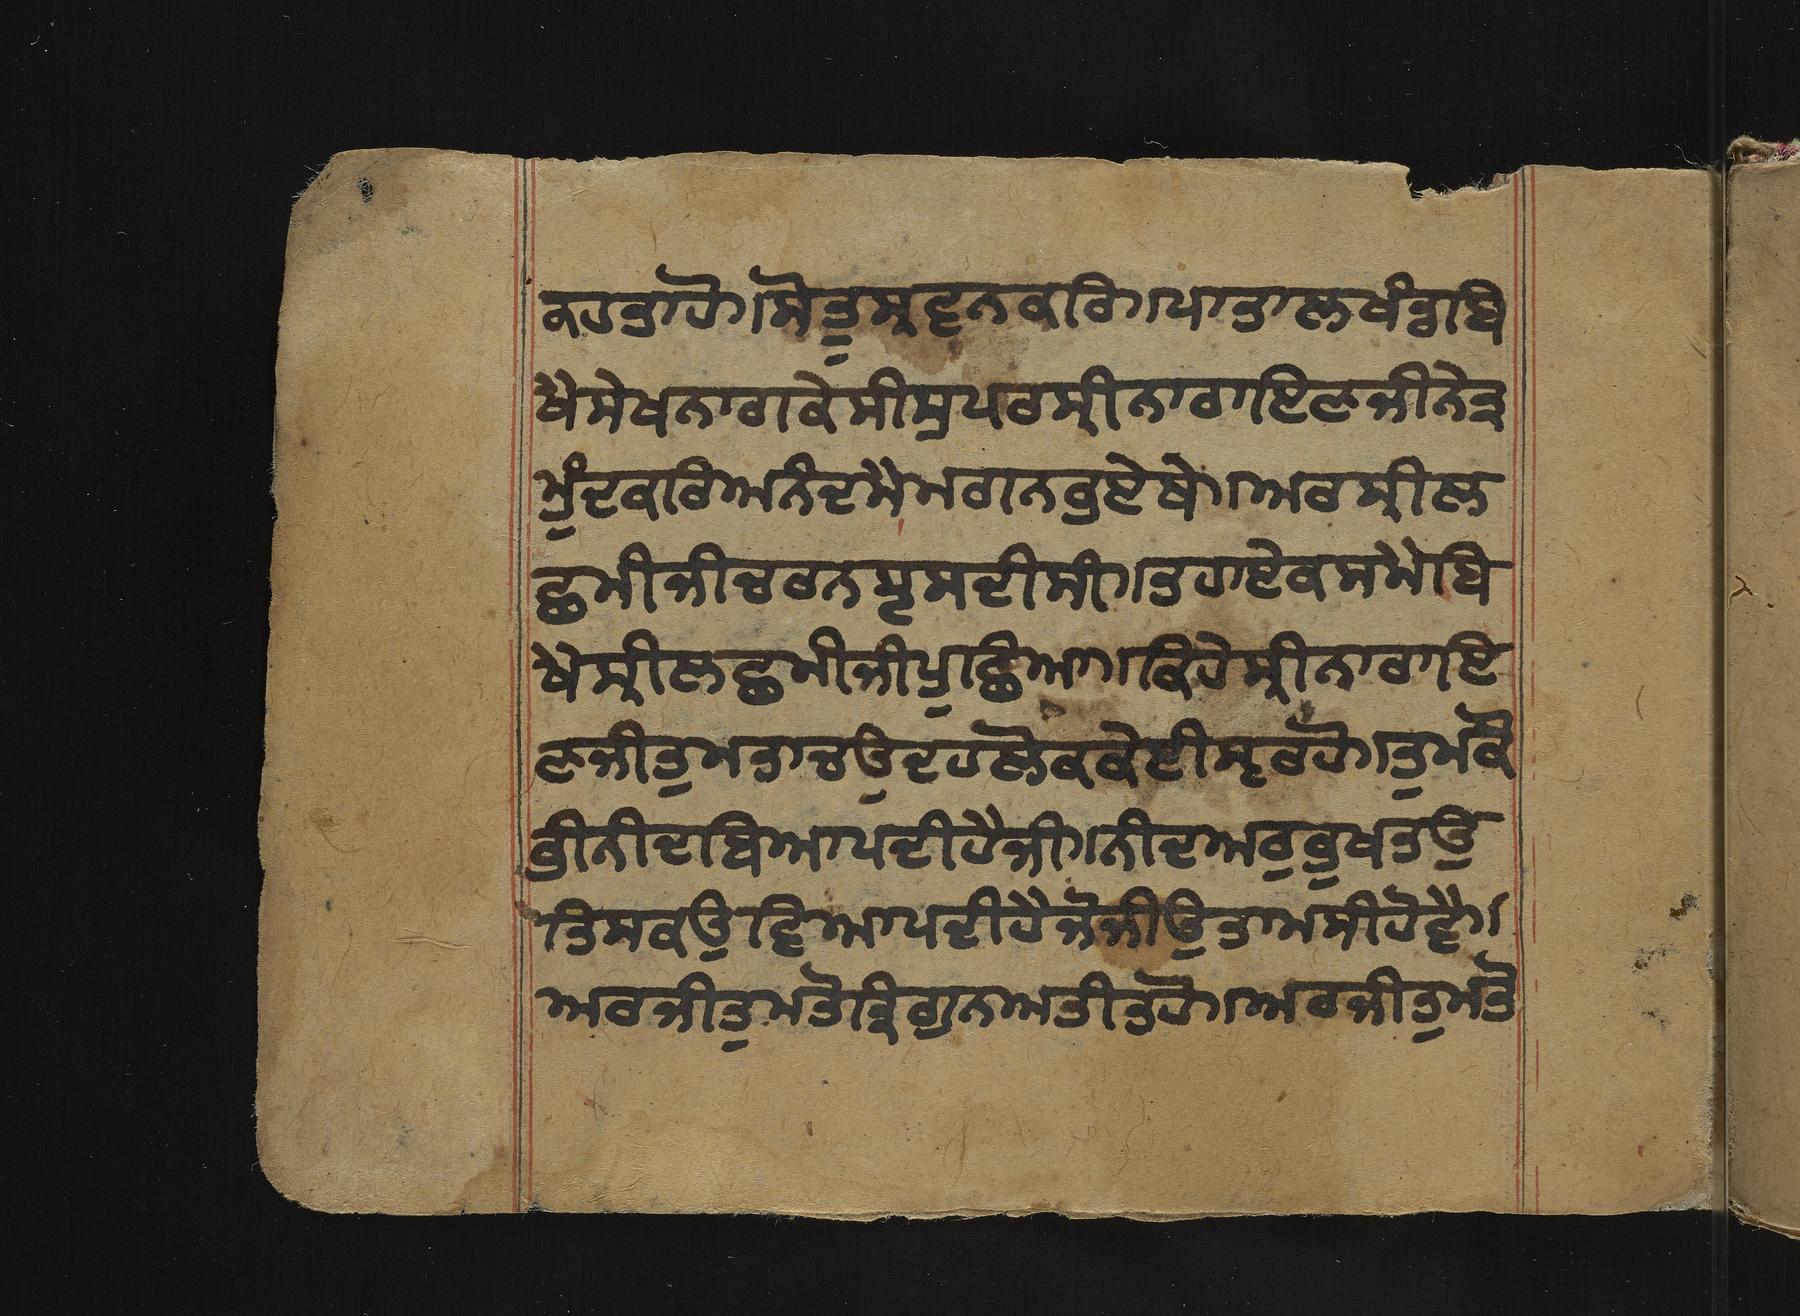 ਕਹਤਾਹੋ।ਸੋਤੁਸ੍ਰਵਨਕਰਿ।ਪਾਤਾਲਖੰਡਬਿ
ਖੈਸੇਖਨਾਗਕੇਸੀਸੁਪਰਸ੍ਰੀਨਾਰਾਇਣਜੀਨੇਤ੍ਰ
ਮੁੰਦਕਰਿਅਨੰਦਮੈਮਗਨਭੁਏਥੇ।ਅਰਸ੍ਰੀਲ
ਛਮੀਜੀਚਰਨਝੁਸਦੀਸੀ।ਤਹਾਏਕਸਮੇਬਿ
ਖੇਸ੍ਰੀਲਛਮੀਜੀਪੁਛਿਆ।ਕਿਹੇਸ੍ਰੀਨਾਰਾਇ
ਣਜੀਤੁਮਤਾਚਉਦਹਲੋਕਕੇਈਸ੍ਵਰਹੋ।ਤੁਮਕੋ
ਭੀਨੀਦਬਿਆਪਦੀਹੈਜੀ।ਨੀਦਅਰੁਭੁਖਤਉ
ਤਿਸਕਉਵਿਆਪਦੀਹੈਜੋਜੀਉਤਾਮਸੀਹੋਵੈ।
ਅਰਜੀਤੁਮਤੋਤ੍ਰਿਗੁਨਅਤੀਤਹੋ।ਅਰਜੀਤੁਮਤੋ